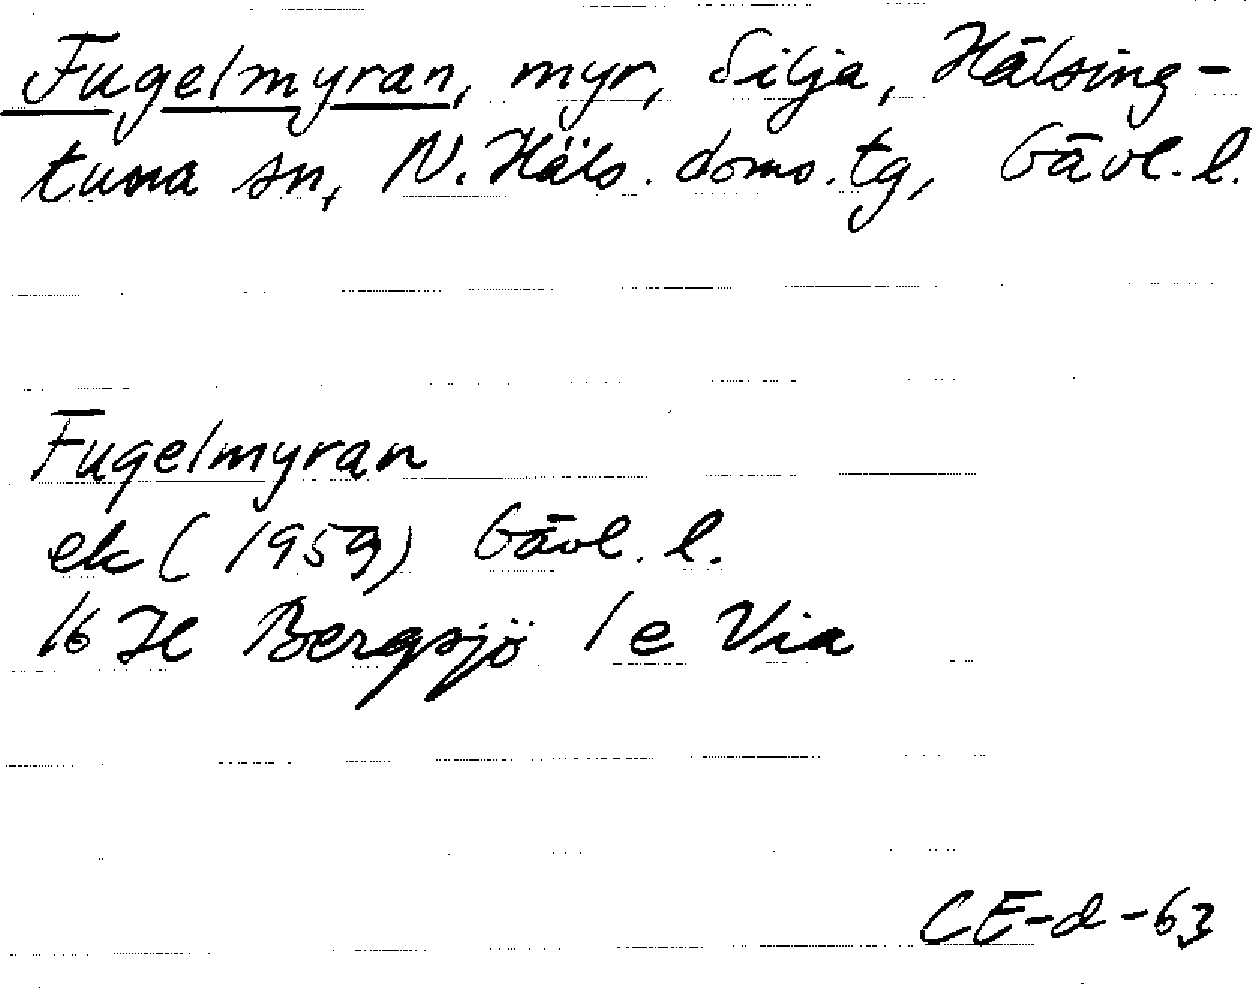 Fugelmyran, myr, Silja, Hälsing-
tuna sn, N. Häls. doms. tg, Gävl. l.
Fugelmyran
ek (1959) Gävl. l.
16 H Bergsjö 1 e Via
CE-d-63